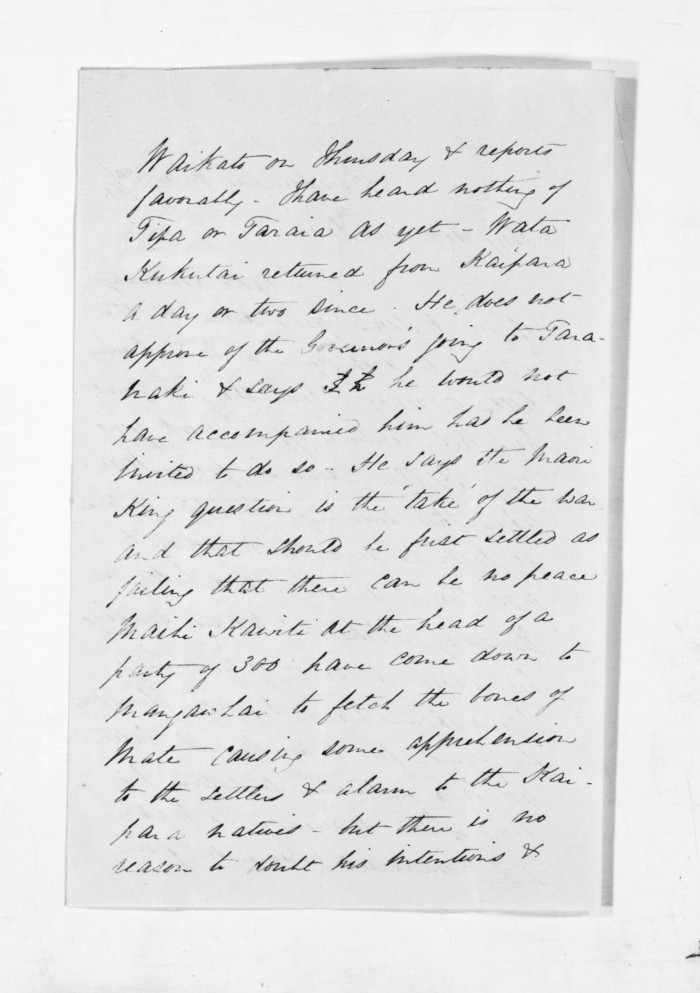 Waikato on Thursday & reports
favorably - I have heard nothing of
Tipa or Taraia as yet - Wata
Kukutai returned from Kaipara
a day or two since. He does not
approve of the Governor's going to Tara-
naki & says he would not
have accompanied him had he been
invited to do so - He says the Maori
King question is the 'take' of the war
and that should be first settled as
failing that there can be no peace
Maihi Kawiti at the head of a
party of 300 have come down to
Mangawhai to fetch the bones of
Mate causing some apprehension
to the settlers & alarm to the Kai-
para natives - but there is no
reason to doubt his intentions &